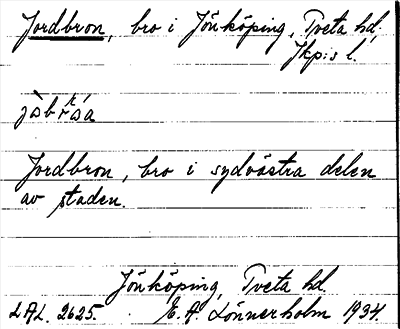 Jordbron, bro i Jönköping, Tveta hd,
Jkp:s l.
Jordbron, bro i sydvästra delen
av staden.
Jönköping, Tveta hd.
LAL. 2625. E. A. Lönnerholm 1934.